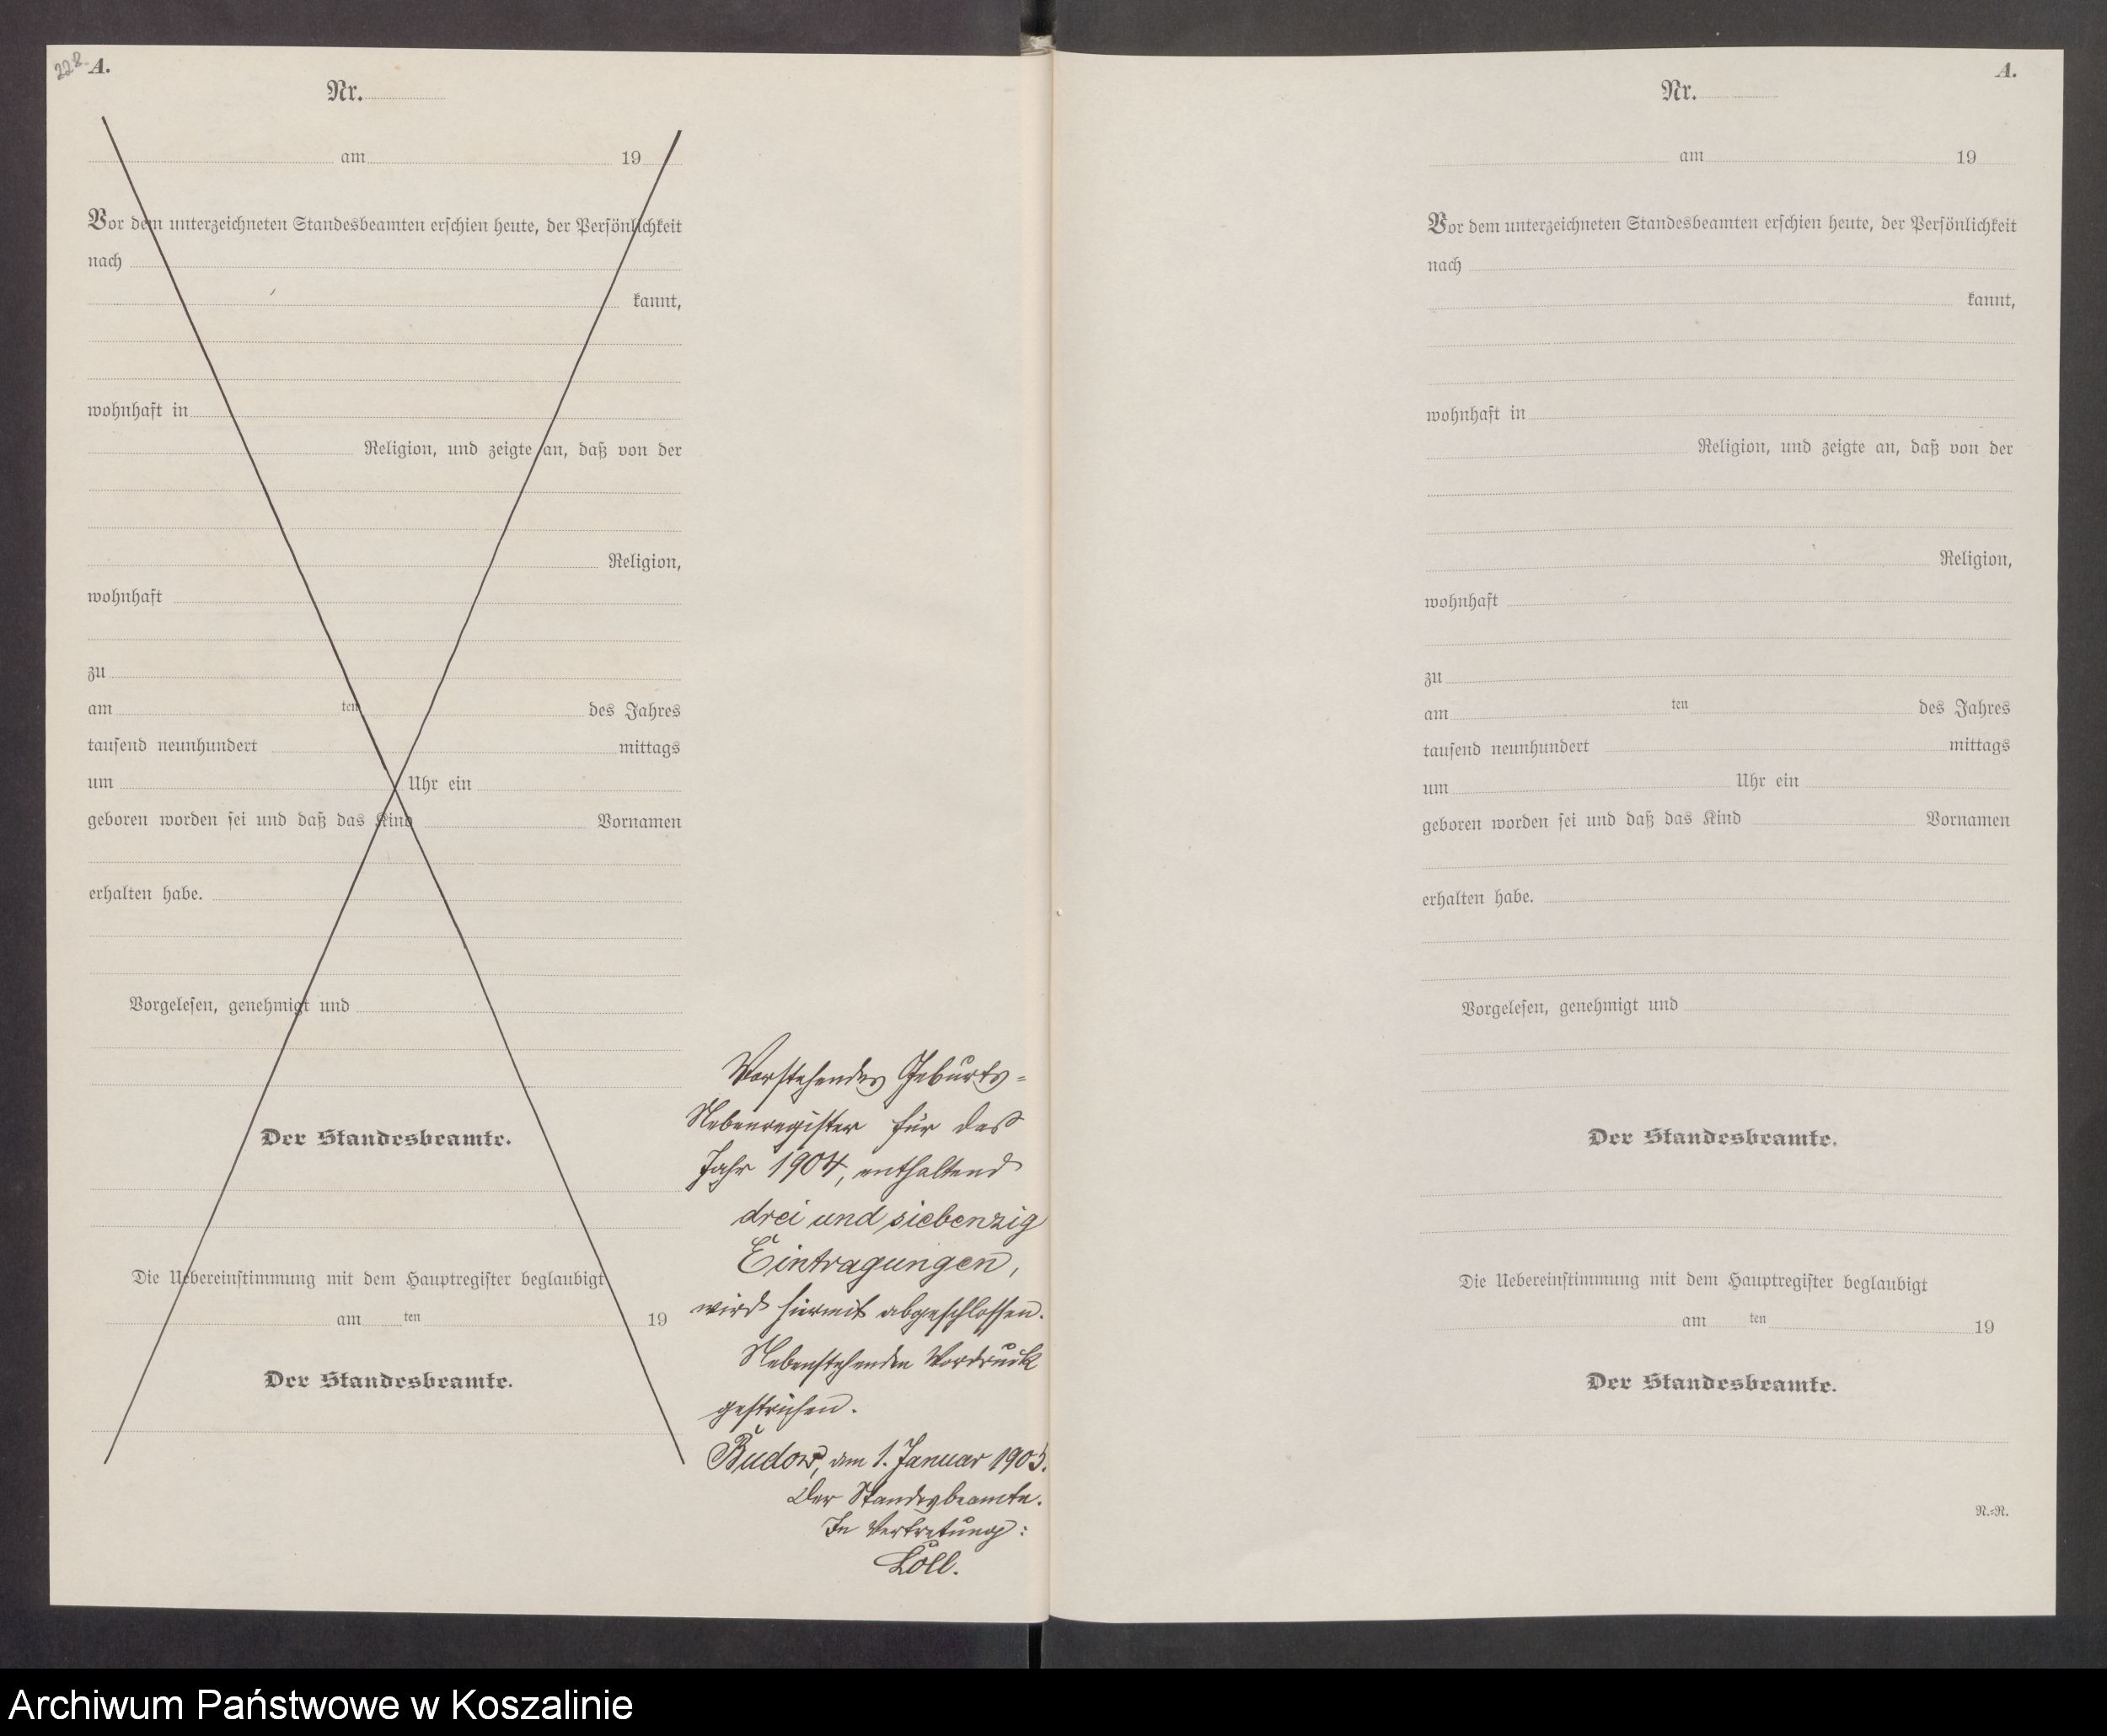 228 A.
Nr.
am 19
Vor dem unterzeichneten Standesbeamten erschien heute, der Persönlichkeit
nach
kannt,
wohnhaft in
Religion, und zeigte an, daß von der
Religion,
wohnhaft
zu
am ten des Jahres
tausend neunhundert mittags
um Uhr ein
geboren worden sei und daß das Kind Vornamen
erhalten habe.
Vorgelesen, genehmigt und
Der Standesbeamte.
Die Uebereinstimmung mit dem Hauptregister beglaubigt
am ten 19
Der Standesbeamte.
Vorstehendes Geburts-
Nebenregister für das
Jahr 1904, enthaltend
drei und siebenzig
Eintragungen,
wird hiermit abgeschlossen.
Nebenstehenden Vordruck
gestrichen.
Budow, am 1. Januar 1905.
Der Standesbeamte.
In Vertretung:
Löll.
A.
Nr.
am 19
Vor dem unterzeichneten Standesbeamten erschien heute, der Persönlichkeit
nach
kannt,
wohnhaft in
Religion, und zeigte an, daß von der
Religion,
wohnhaft
zu
am ten des Jahres
tausend neunhundert mittags
um Uhr ein
geboren worden sei und daß das Kind Vornamen
erhalten habe.
Vorgelesen, genehmigt und
Der Standesbeamte.
Die Uebereinstimmung mit dem Hauptregister beglaubigt
am ten 19
Der Standesbeamte.
N.=R.
Archiwum Państwowe w Koszalinie